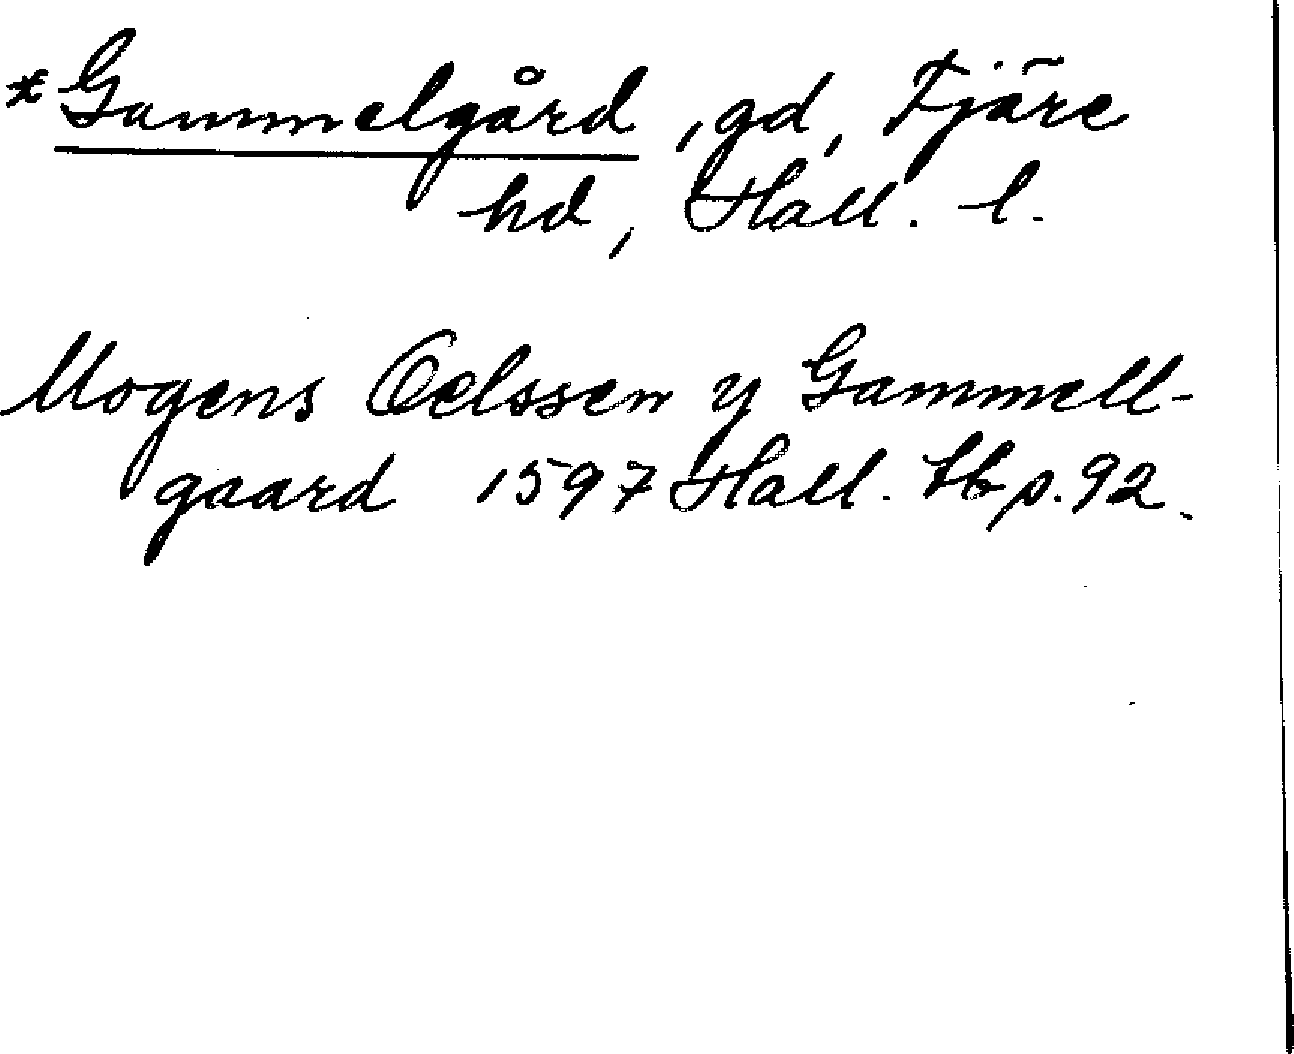 *Gammelgård, gd, Fjäre
hd, Hall. l.
Mogens Oelssen y Gammell-
gaard 1597 Hall. lb p. 92.